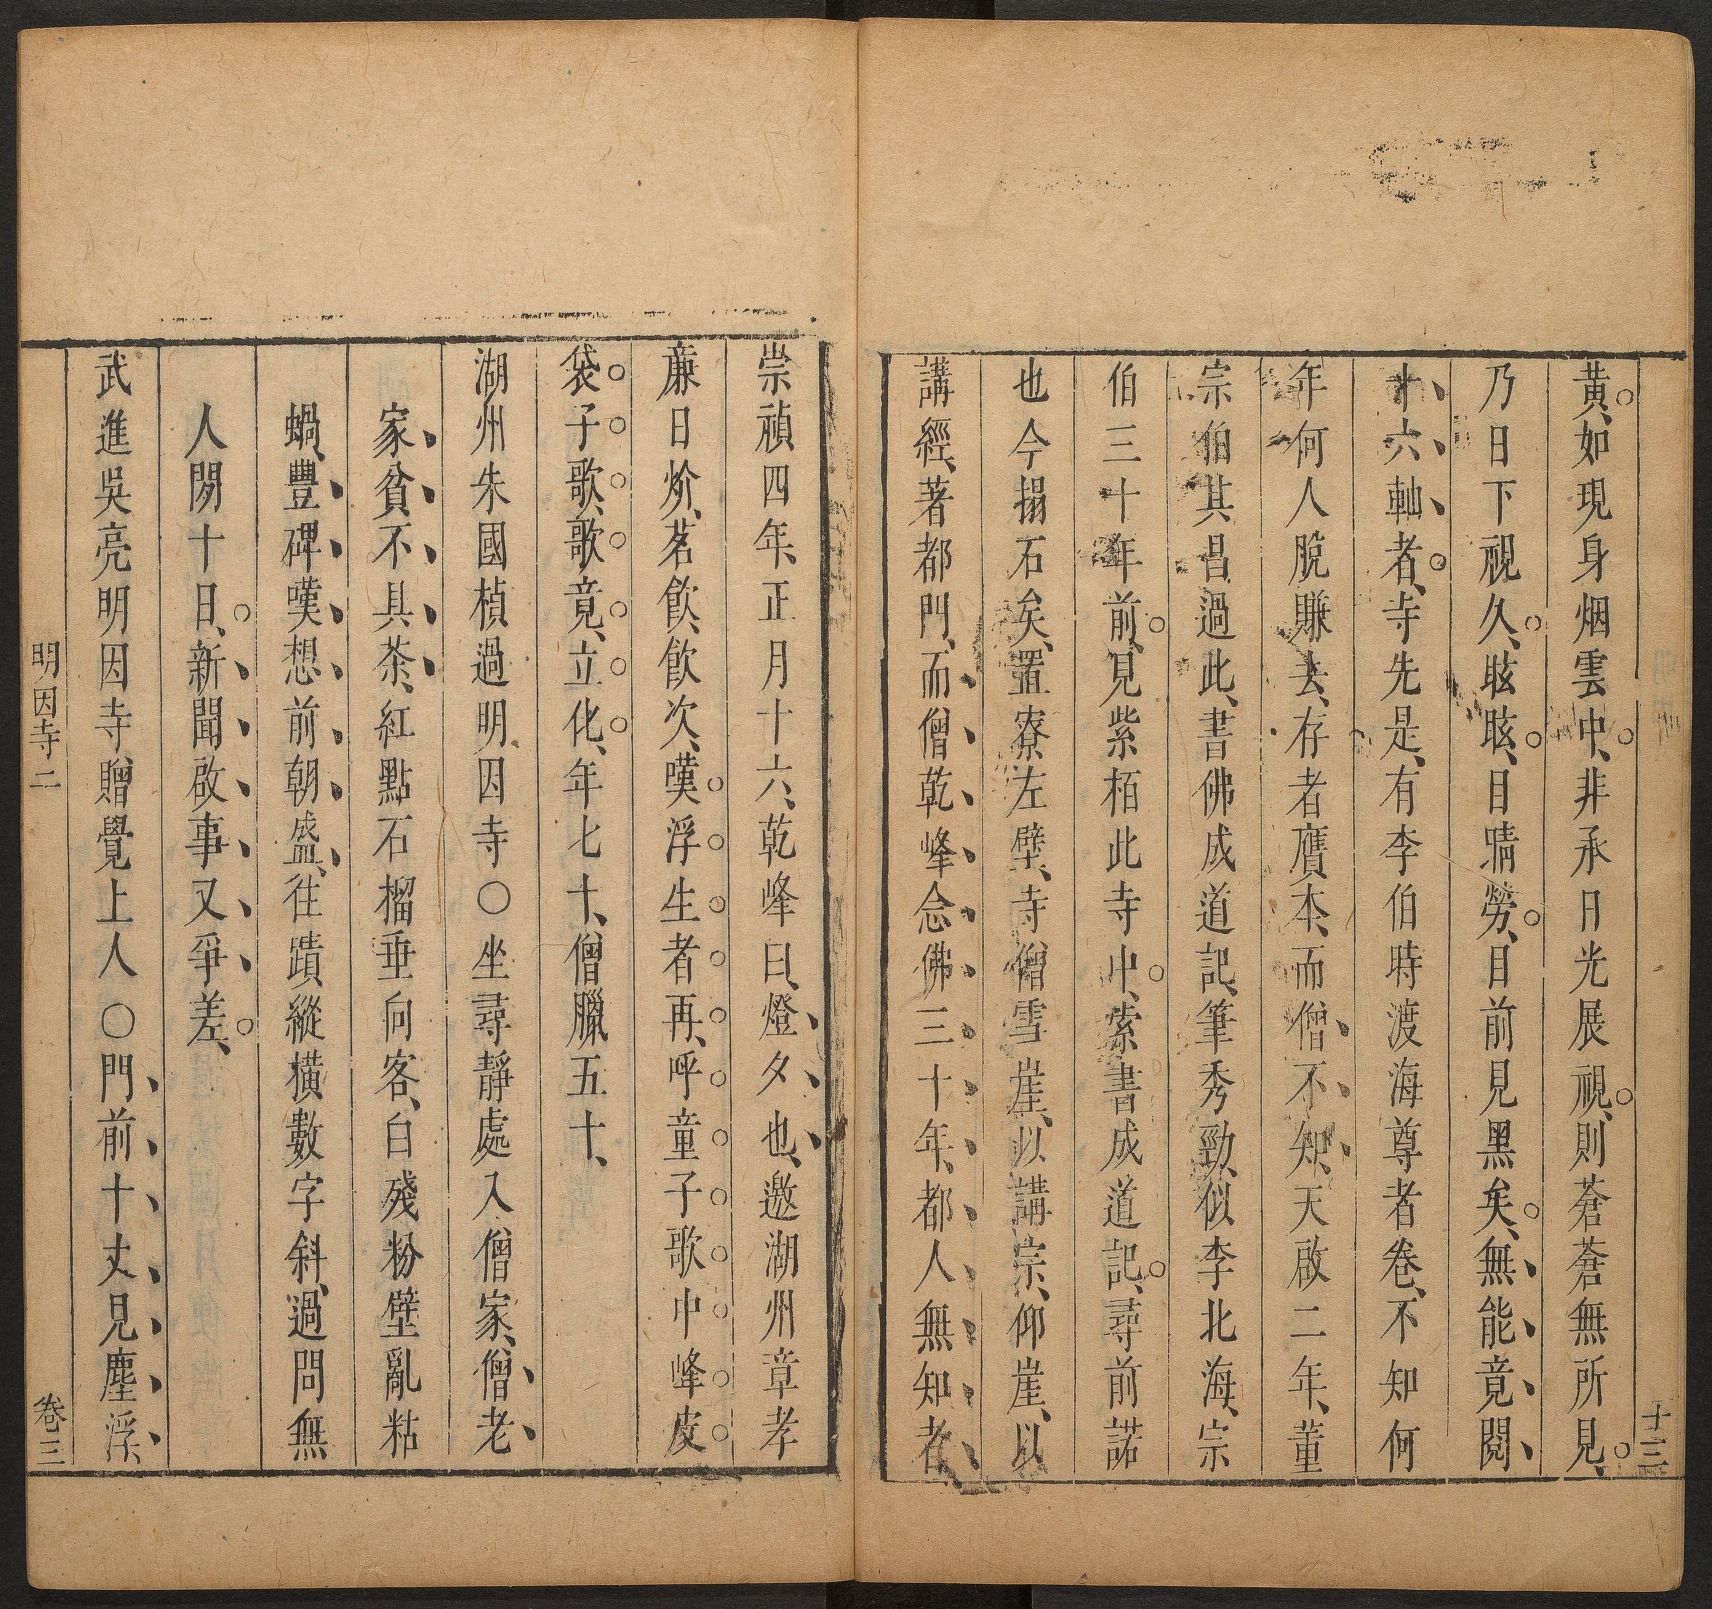 十三
黃、如現身烟雲中、非承日光展視、則蒼蒼無所見、
乃日下視久、眩眩、目睛勞、目前見黑矣、無能竟閱
十六軸者、寺先是、有李伯時渡海尊者卷、不知何
年何人脫賺去、存者贗本、而僧不知、天啟二年、董
宗伯其昌過此、書佛成道記、筆秀勁、似李北海、宗
伯三十年前、見紫栢此寺中、索書成道記、尋前諾
也今搨石矣、置寮左壁、寺僧雪崖、以講宗、仰崖、以
講經、著都門、而僧乾峰念佛三十年、都人無知者、
崇禎四年、正月十六、乾峰曰、燈夕也、邀湖州章孝
廉日炌、茗飲、飲次、嘆浮生者再、呼童子歌中峰皮
袋子歌、歌竟、立化、年七十、僧臘五十、
湖州朱國楨過明因寺○坐尋靜處入僧家、僧老
家貧不具茶、紅點石榴垂向客、白殘粉壁亂粘
蝸、豐碑嘆想前朝盛、往蹟縱橫數字斜、過問無
人閒十日、新聞啟事又爭差、
武進吳亮明因寺贈覺上人○門前十丈見塵浮、
明因寺二
卷三